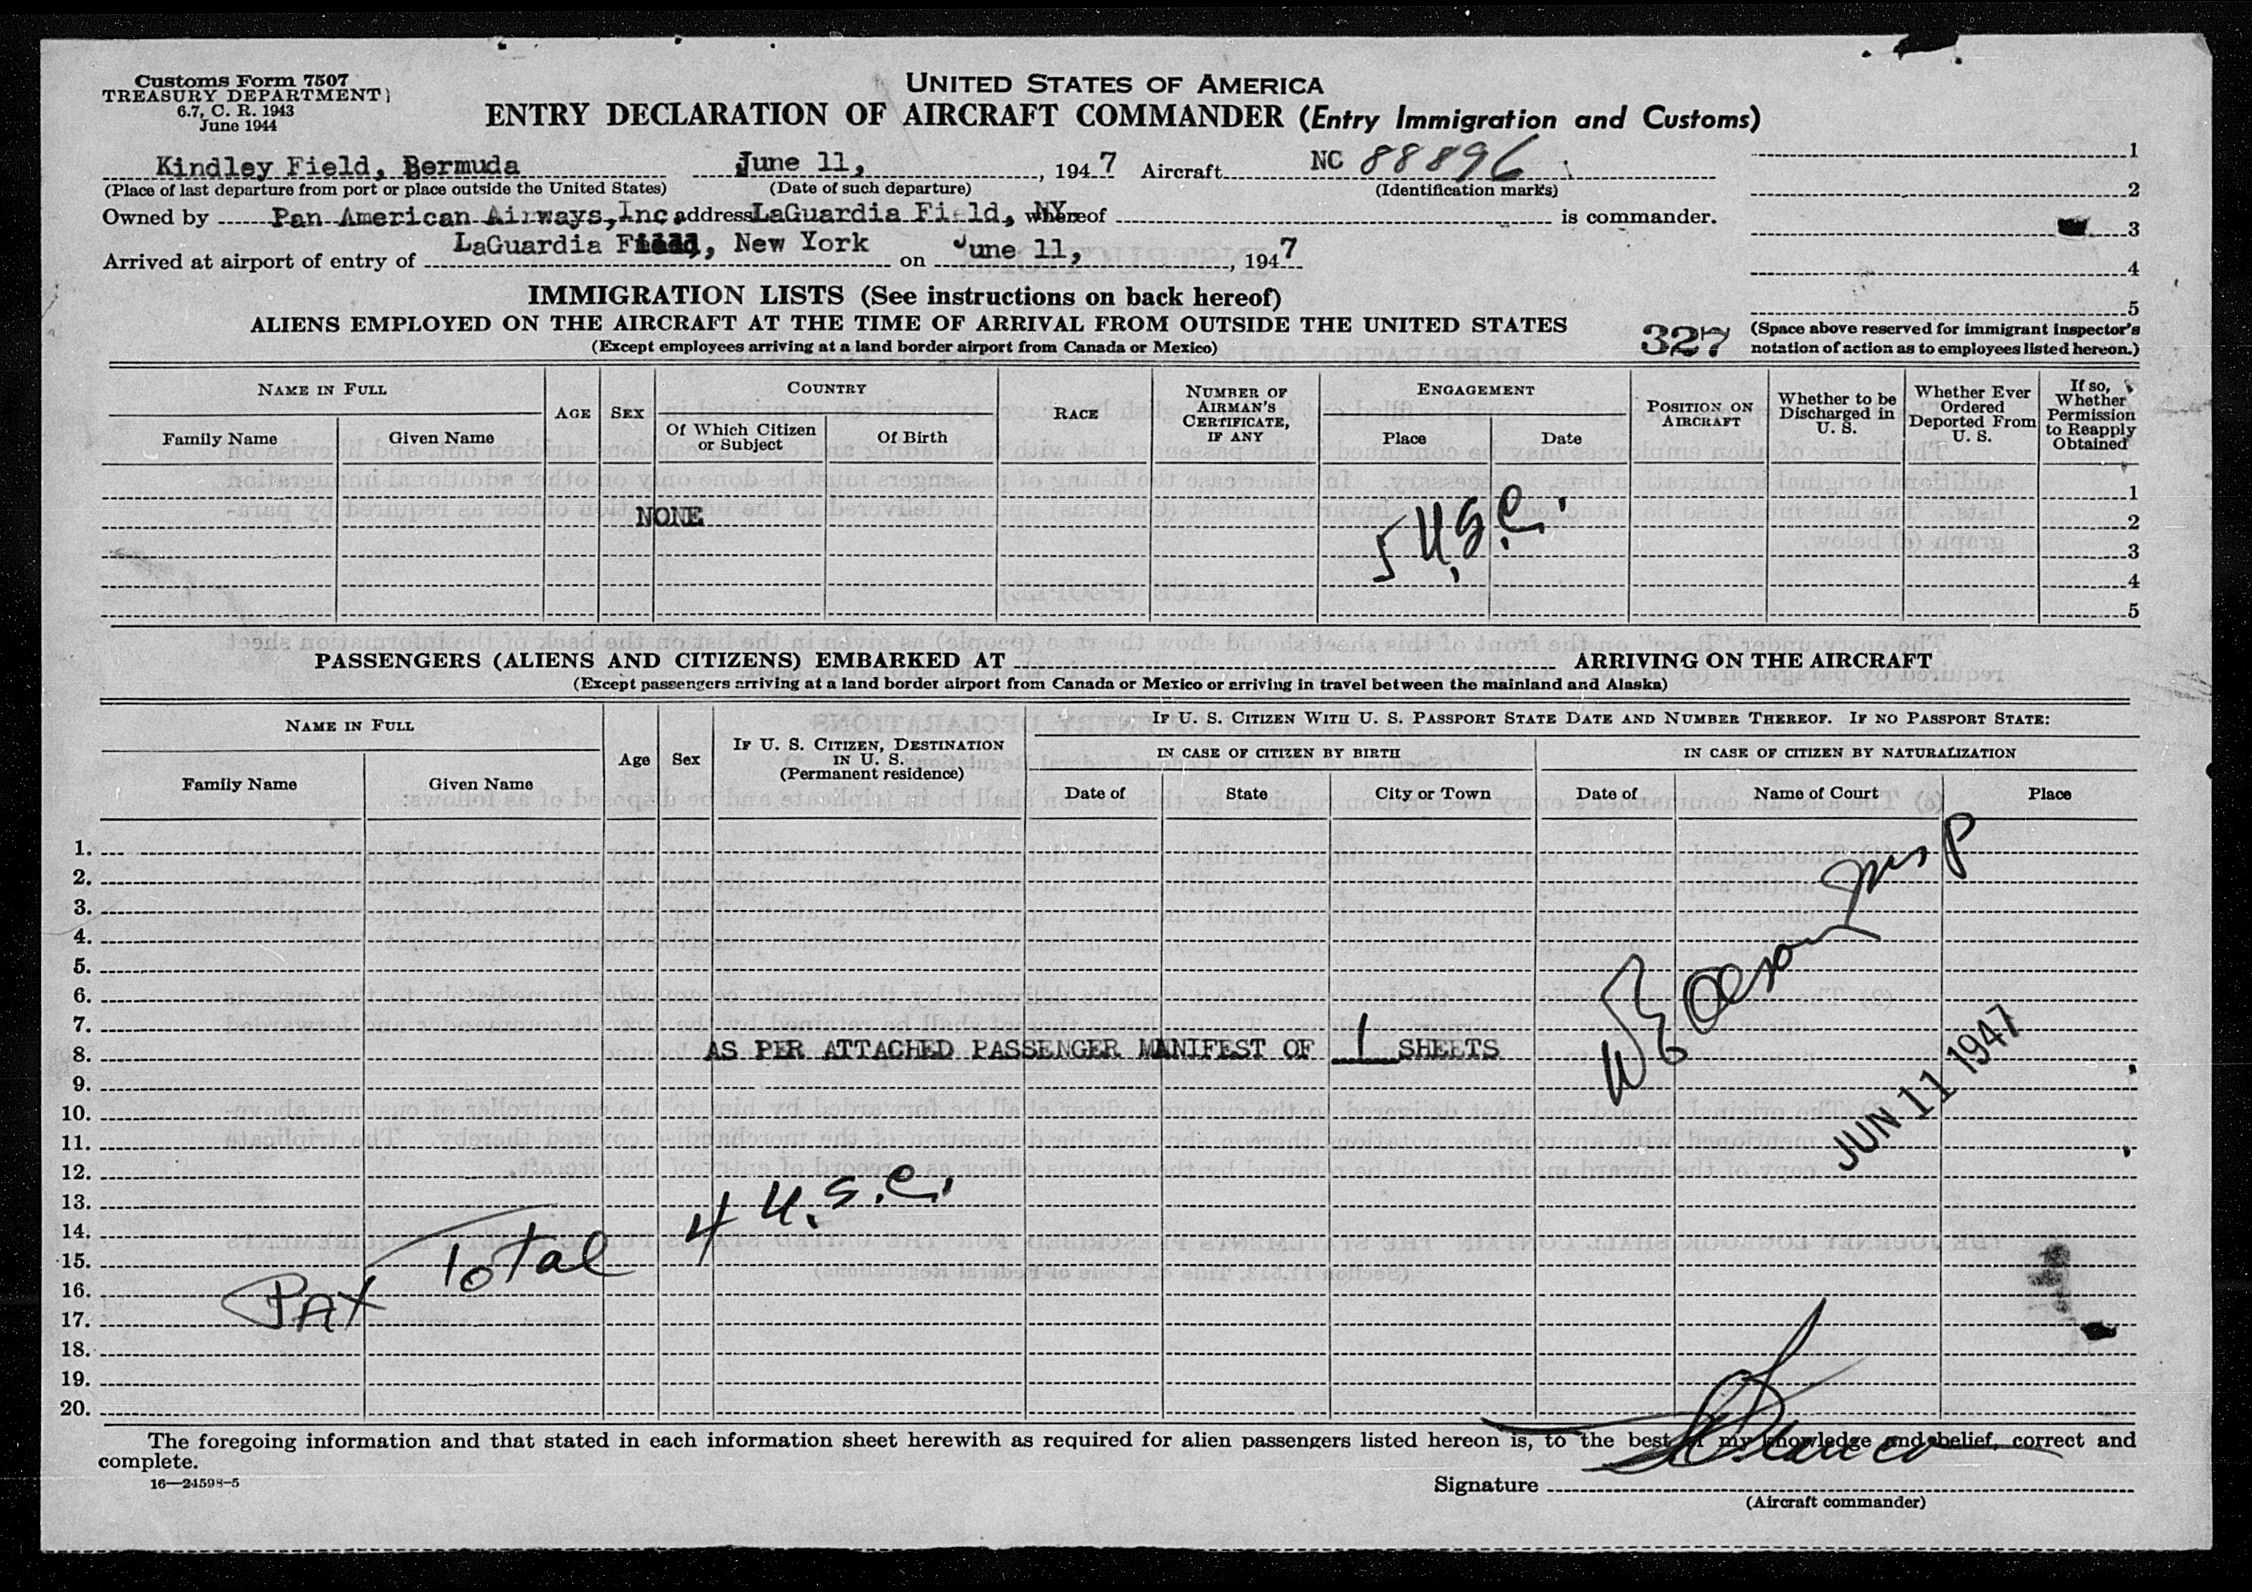 Customs Form 7507
TREASURY DEPARTMENT
6.7, C. R. 1943
June 1944
UNITED STATES OF AMERICA
ENTRY DECLARATION OF AIRCRAFT COMMANDER (Entry Immigration and Customs)
Kindley Field, Bermuda June 11, , 1947 Aircraft NC 88896
(Place of last departure from port or place outside the United States) (Date of such departure) (Identification marks)
Owned by Pan American Airways, Inc. address LaGuardia Field, NY. whereof is commander.
Arrived at airport of entry of LaGuardia Field, New York on June 11, , 1947
1
2
3
4
5
(Space above reserved for immigrant inspector's
notation of action as to employees listed hereon.)
IMMIGRATION LISTS (See instructions on back hereof)
ALIENS EMPLOYED ON THE AIRCRAFT AT THE TIME OF ARRIVAL FROM OUTSIDE THE UNITED STATES
327
(Except employees arriving at a land border airport from Canada or Mexico)
NAME IN FULL
Family Name Given Name
AGE
SEX
COUNTRY
Of Which Citizen or Subject Of Birth
RACE
NUMBER OF AIRMAN'S CERTIFICATE, IF ANY
ENGAGEMENT
Place Date
POSITION ON AIRCRAFT
Whether to be Discharged in U. S.
Whether Ever Ordered Deported From U. S.
If so, Whether Permission to Reapply Obtained
1
NONE 2
5 U.S.C.
3
4
5
PASSENGERS (ALIENS AND CITIZENS) EMBARKED AT ARRIVING ON THE AIRCRAFT
(Except passengers arriving at a land border airport from Canada or Mexico or arriving in travel between the mainland and Alaska)
NAME IN FULL
Family Name Given Name
Age
Sex
IF U. S. CITIZEN, DESTINATION IN U. S.
(Permanent residence)
IF U. S. CITIZEN WITH U. S. PASSPORT STATE DATE AND NUMBER THEREOF. IF NO PASSPORT STATE:
IN CASE OF CITIZEN BY BIRTH IN CASE OF CITIZEN BY NATURALIZATION
Date of State City or Town Date of Name of Court Place
1.
2.
3.
4.
5.
6.
7.
8. AS PER ATTACHED PASSENGER MANIFEST OF 1 SHEETS
9.
JUN 11 1947
10.
11.
12.
13.
14.
15.
16.
PAX Total 4 U.S.C.
17.
18.
19.
20.
The foregoing information and that stated in each information sheet herewith as required for alien passengers listed hereon is, to the best of my knowledge and belief, correct and
complete.
16—24598-5
Signature
(Aircraft commander)